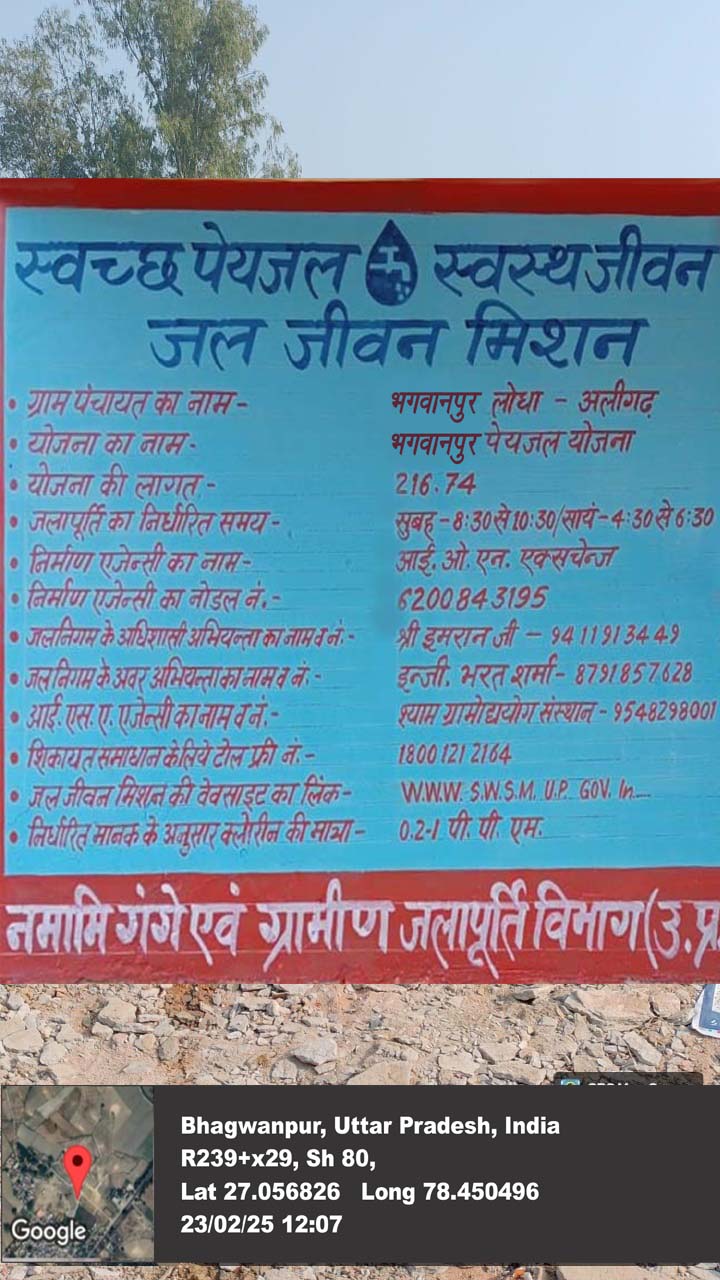 स्वच्छ पेयजल स्वस्थ जीवन
जल जीवन मिशन
• ग्राम पंचायत का नाम - भगवानपुर लोधा - अलीगढ़
• योजना का नाम - भगवानपुर पेयजल योजना
• योजना की लागत - 216.74
• जलापूर्ति का निर्धारित समय - सुबह - 8:30 से 10:30/सायं - 4:30 से 6:30
• निर्माण एजेन्सी का नाम - आई. ओ. एन. एक्सचेन्ज
• निर्माण एजेन्सी का नोडल नं. - 6200843195
• जलनिगम के अधिशासी अभियन्ता का नाम व नं - श्री इमरान जी - 9411913449
• जलनिगम के अवर अभियन्ता का नाम व नं: - इन्जी. भरत शर्मा - 8791857628
• आई. एस. ए. एजेन्सी का नाम व नं: - श्याम ग्रामोद्योग संस्थान - 9548298001
• शिकायत समाधान के लिये टोल फ्री नं. - 1800 121 2164
• जल जीवन मिशन की वेवसाइट का लिंक - W.W.W. S.W.S.M. U.P. GOV. In
• निर्धारित मानक के अनुसार क्लोरीन की मात्रा - 0.2-1 पी. पी. एम.
नमामि गंगे एवं ग्रामीण जलापूर्ति विभाग (उ.प्र
Bhagwanpur, Uttar Pradesh, India
R239+x29, Sh 80,
Lat 27.056826 Long 78.450496
23/02/25 12:07
Google